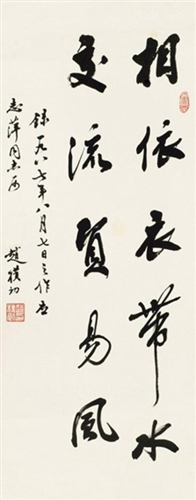 相依衣帶水
交流貿易風
錄一九八七年八月七日之作應
志萍同志屬
趙樸初